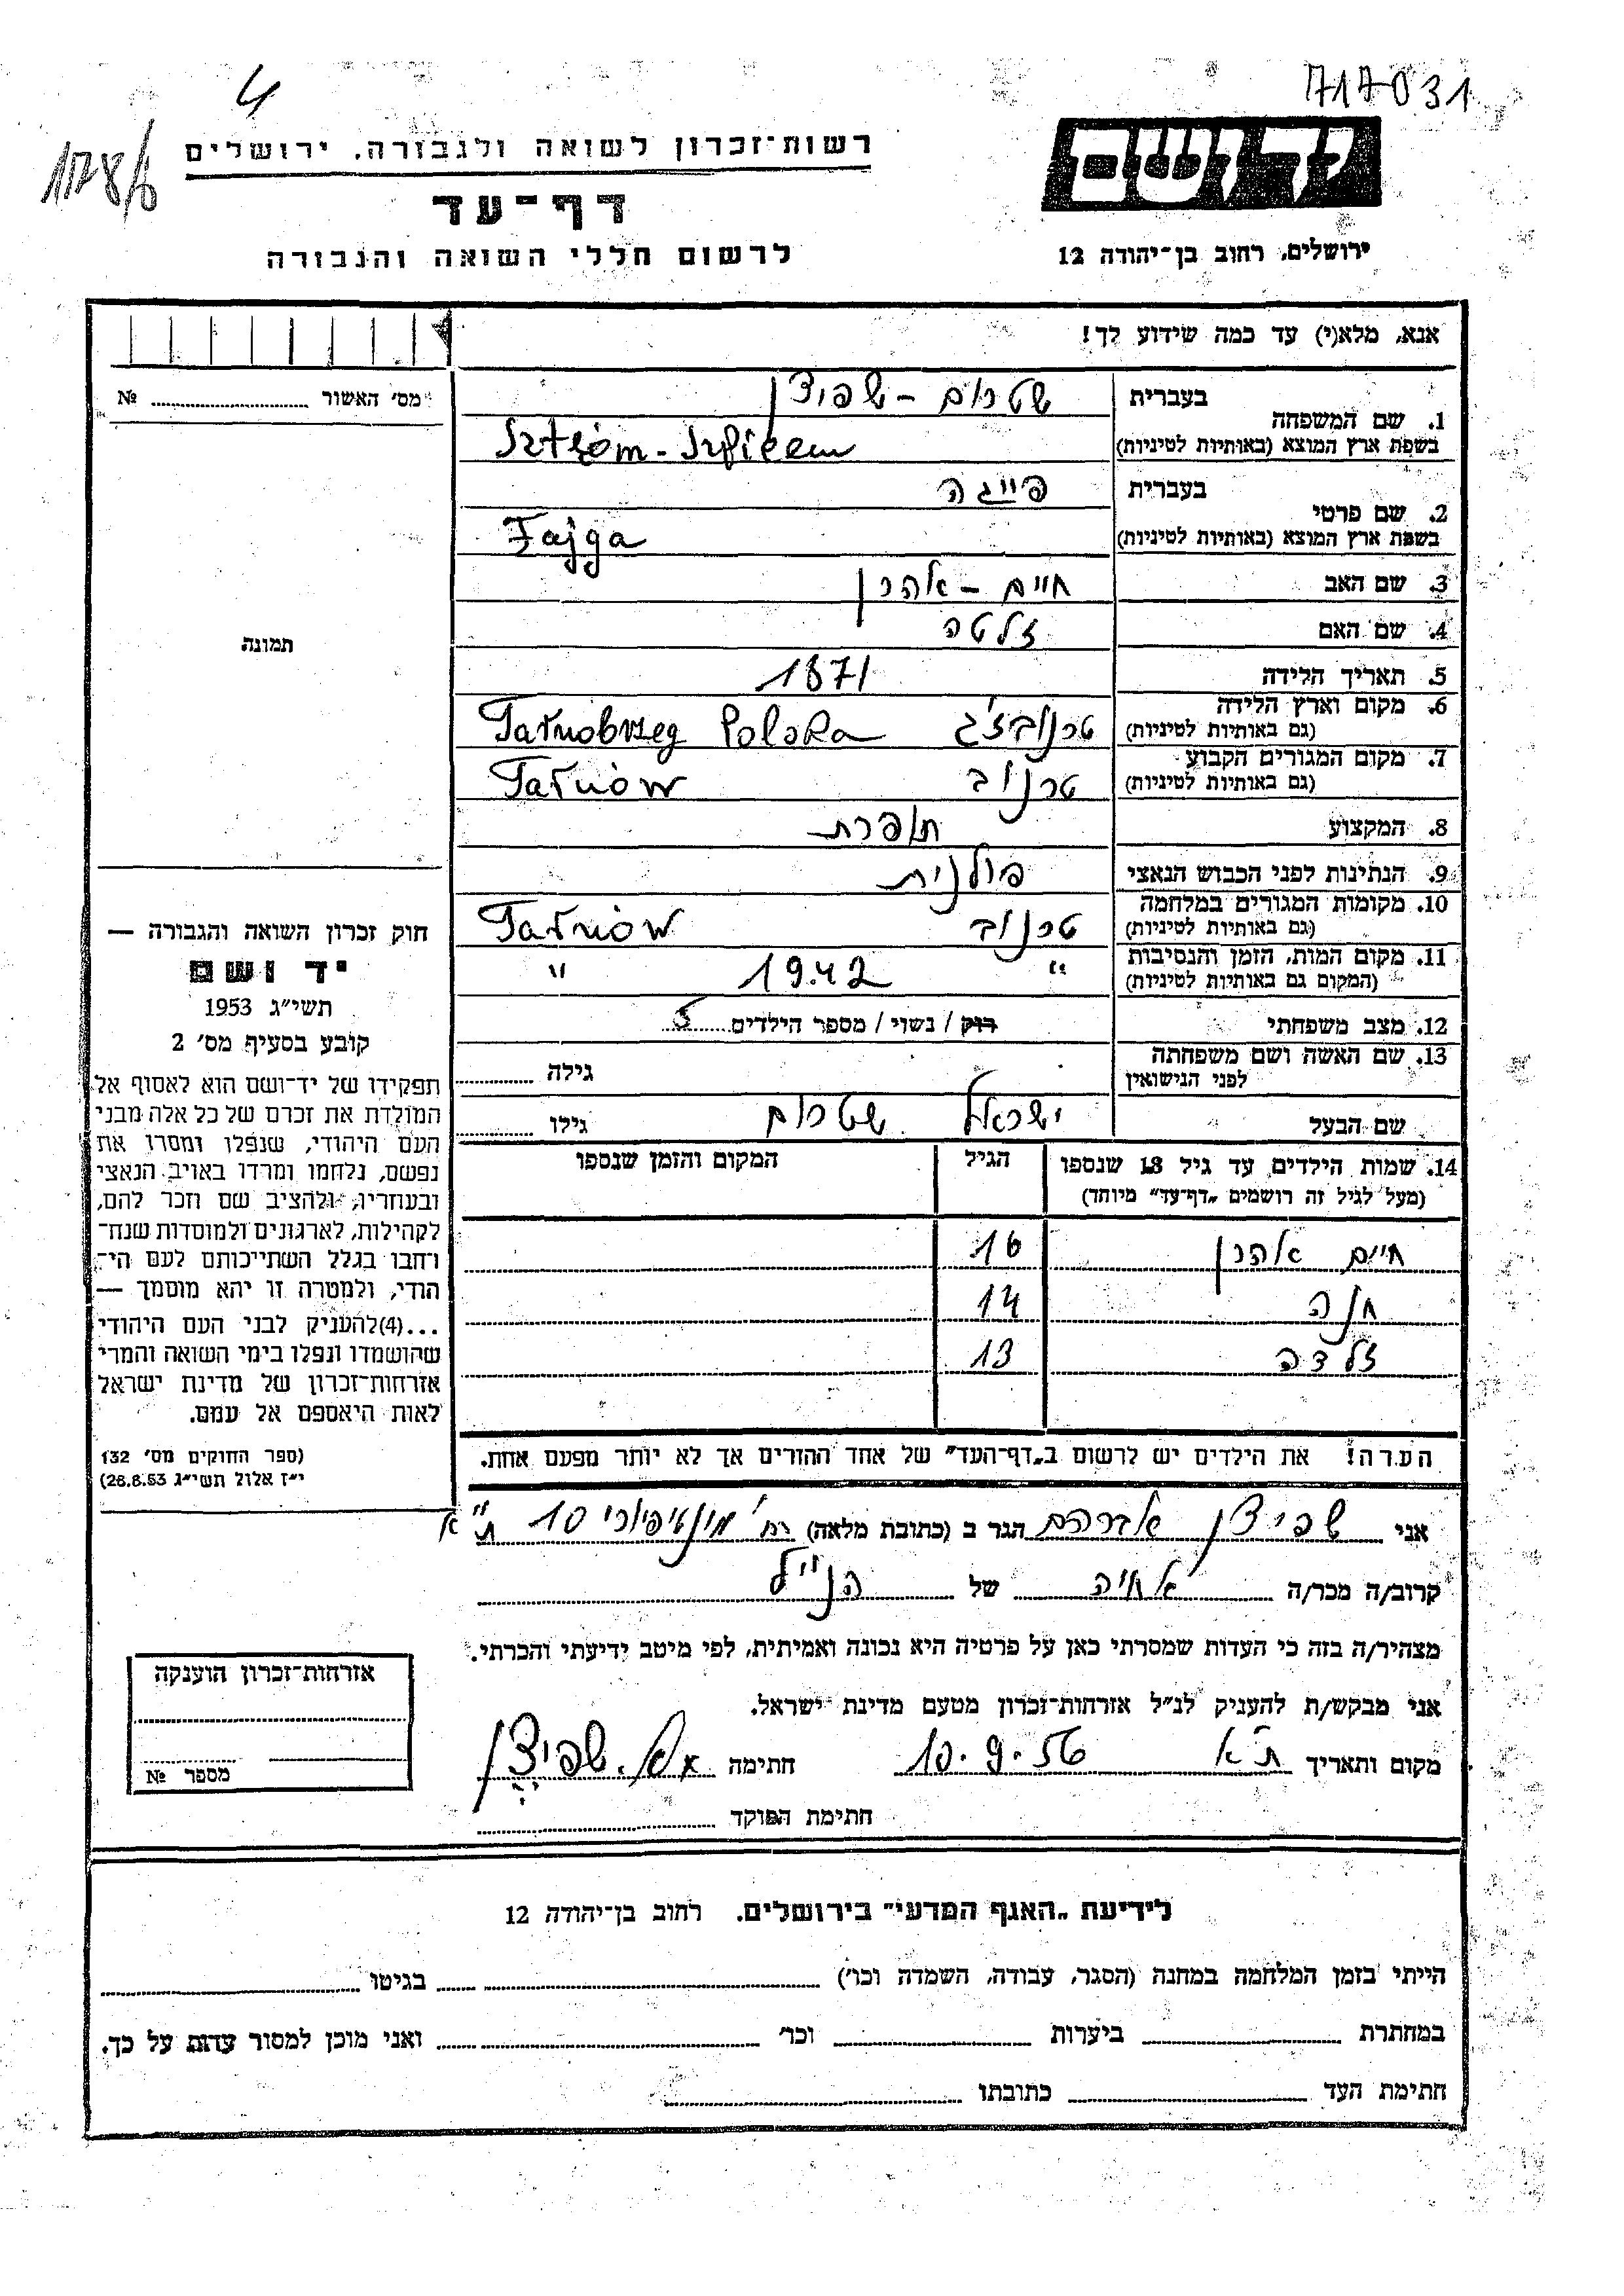 717031
4
1178/6
יד ושם
רשות־זכרון לשואה ולגבורה, ירושלים
דף־עד
לרשום חללי השואה והגבורה
ירושלים, רחוב בן־יהודה 12
אנא, מלא(י) עד כמה שידוע לך!
מס׳ האשור ............ №
תמונה
1. שם המשפחה בעברית שטרום - שפיצן
בשפת ארץ המוצא (באותיות לטיניות) Sztróm -
2. שם פרטי בעברית פייגה
בשפת ארץ המוצא (באותיות לטיניות) Fajga
3. שם האב חיים - אהרן
4. שם האם זלטה
5. תאריך הלידה 1871
6. מקום וארץ הלידה טרנובז'ג Tarnobrzeg Polska
(גם באותיות לטיניות)
7. מקום המגורים הקבוע טרנוב Tarnów
(גם באותיות לטיניות)
8. המקצוע תופרת
9. הנתינות לפני הכבוש הנאצי פולנית
10. מקומות המגורים במלחמה טרנוב Tarnów
(גם באותיות לטיניות)
11. מקום המות, הזמן והנסיבות " 1942 "
(המקום גם באותיות לטיניות)
12. מצב משפחתי רוק / נשוי / מספר הילדים 5
13. שם האשה ושם משפחתה גילה
לפני הנישואין
שם הבעל ישראל שטרום גילו
14. שמות הילדים עד גיל 18 שנספו הגיל המקום והזמן שנספו
(מעל לגיל זה רושמים „דף־עד" מיוחד)
חיים אהרן 16
חנה 14
זלדה 13
הערה! את הילדים יש לרשום ב„דף־העד" של אחד ההורים אך לא יותר מפעם אחת.
חוק זכרון השואה והגבורה —
יד ושם
תשי״ג 1953
קובע בסעיף מס׳ 2
תפקידו של יד־ושם הוא לאסוף אל
המולדת את זכרם של כל אלה מבני
העם היהודי, שנפלו ומסרו את
נפשם, נלחמו ומרדו באויב הנאצי
ובעוזריו, ולהציב שם וזכר להם,
לקהילות, לארגונים ולמוסדות שנח־
רחבו בגלל השתייכותם לעם הי־
הודי, ולמטרה זו יהא מוסמך —
...(4)להעניק לבני העם היהודי
שהושמדו ונפלו בימי השואה והמרי
אזרחות־זכרון של מדינת ישראל
לאות היאספם אל עמם.
(ספר החוקים מס׳ 132
י״ז אלול תשי״ג 28.8.53)
אני שפיצן אברהם הגר ב (כתובת מלאה) רח' מונטיפיורי 10 ת"א
קרוב/ה מכר/ה אחיה של הנ"ל
מצהיר/ה בזה כי העדות שמסרתי כאן על פרטיה היא נכונה ואמיתית, לפי מיטב ידיעתי והכרתי.
אני מבקש/ת להעניק לנ״ל אזרחות־זכרון מטעם מדינת ישראל.
מקום ותאריך ת"א 10.9.56 חתימה שפיצן
חתימת הפוקד
אזרחות־זכרון הוענקה
מספר №
לידיעת „האגף המדעי" בירושלים, רחוב בן־יהודה 12
הייתי בזמן המלחמה במחנה (הסגר, עבודה, השמדה וכו׳) בגיטו
במחתרת ביערות וכו׳ ואני מוכן למסור עדות על כך.
חתימת העד כתובתו